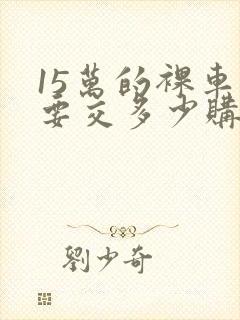 15萬的裸車
要交多少購
劉少奇